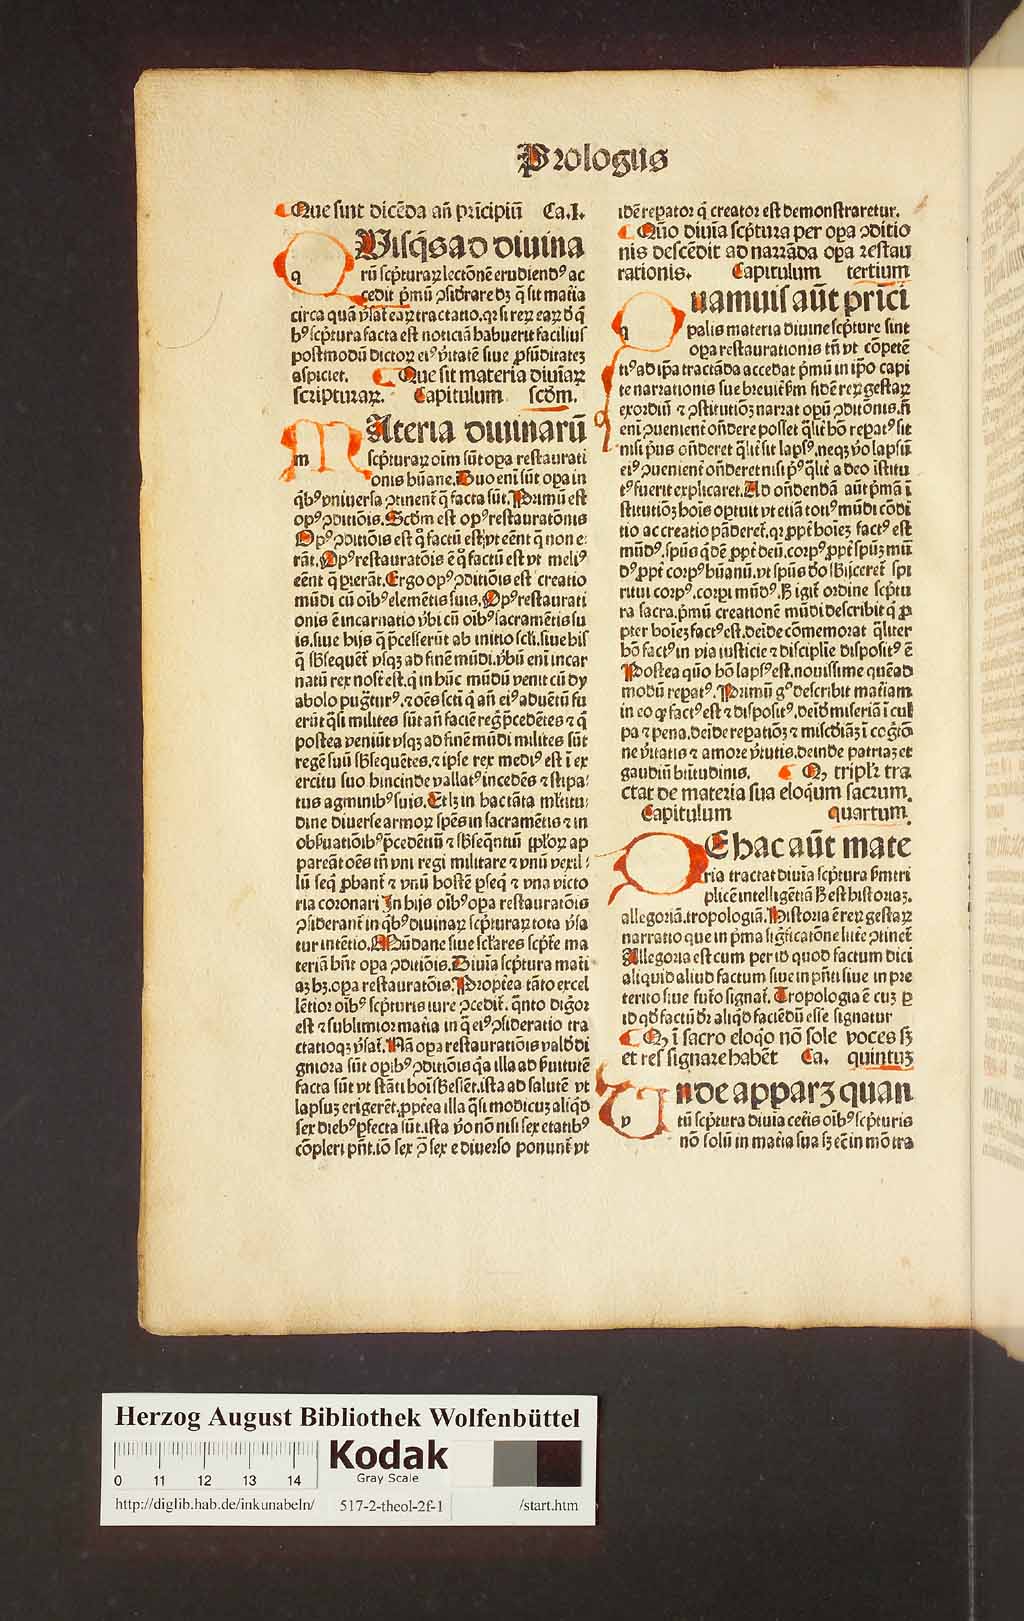 Prologus
Que sunt dicẽda añ pñcipiũ Ca.I.
QUisq̃s ad diuina
rũ scp̃turaꝝ lectõnẽ erudiendꝰ ac
cedit p̃mũ ꝯsid̃rare dꝫ q̃ sit mat̃ia
circa quã ṽsat̃ eaꝝ tractatio. qꝛ si reꝝ eaꝝ d̃ q̃
bꝰ scp̃tura facta est noticiã habuerit facilius
postmodũ dictoꝝ eiꝰ ṽitatẽ siue ꝓfũditatẽ
aspiciet. Que sit materia diuiaꝝ
scripturaꝝ. Capitulum scdm.
MAteria diuinarũ
scp̃turaꝝ oĩm sũt opa restaurati
onis hũane. Duo eni sũt opa in
q̃bꝰ vniuersa ꝯtinent̃ q̃ facta sũt. Primũ est
opꝰ ꝯditiõis. Scdm est opꝰ restauratõnis
Opꝰ ꝯditiõis est q̃ factũ est vt eẽnt q̃ non e
rãt. Opꝰ restauratõis ẽ q̃ factũ est vt meliꝰ
eẽnt q̃ ꝑierãt. Ergo opꝰ ꝯditiõis est creatio
mũdi cũ oĩbꝰ elemẽtis suis. Opꝰ restaurati
onis ẽ incarnatio ṽbi cũ oĩbꝰ sacramẽtis su
is. siue hijs q̃ p̃cesserũt ab initio scl̃i. siue his
q̃ sb̃sequẽt̃ vsqꝫ ad finẽ mũdi. ṽbũ eni incar
natũ rex nost̃ est. q̃ in hũc mũdũ venit cũ dy
abolo pug̃turꝰ. ⁊ oẽs scti q̃ añ eiꝰ aduẽtũ fu
erũt q̃si milites sũt añ faciẽ reg̃ p̃cedẽtes ⁊ q̃
postea veniũt vsqꝫ ad finẽ mũdi milites sũt
regẽ suũ sb̃sequẽtes. ⁊ ip̃e rex mediꝰ est ĩ ex
ercitu suo hincinde vallatꝰ incedẽs ⁊ stipa
tus agminibꝰ suis. Et lꝫ in hac tãta ml̃titu
dine diuerse armoꝝ sp̃es in sacramẽtis ⁊ in
obẽuatiõibꝰ p̃cedẽtiũ ⁊ sb̃seq̃ntiũ pp̃loꝝ ap
pareãt oẽs tñ vni regi militare ⁊ vnũ vexil
lũ seq̃ ꝓbant̃ ⁊ vnũ hostẽ ꝑseq̃ ⁊ vna victo
ria coronari In hijs oĩbꝰ opa restauratõis
ꝯsiderant̃ in q̃bꝰ diuinaꝝ scp̃turaꝝ tota ṽsa
tur intẽtio. Mũdane siue scl̃ares scp̃t̃e ma
teriã hñt opa ꝯditiõis. Diuĩa scp̃tura mat̃i
aꝫ hꝫ. opa restauratõis. Propt̃ea tãto excel
lẽtior oĩbꝰ scp̃turis iure ꝯcedit̃. q̃nto dig̃or
est ⁊ sublimior mat̃ia in q̃ eiꝰ ꝯsideratio tra
ctatioqꝫ ṽsat̃. Nã opa restauratiõis vald̃ di
gniora sũt opĩbꝰ ꝯditiõis q̃a illa ad ẽuitutẽ
facta sũt vt stãti hoĩ sb̃essẽt. ista ad salutẽ vt
lapsuꝫ erigerẽt. ꝓpt̃ea illa q̃si modicuꝫ aliq̃d
sex diebꝰ ꝑfecta sũt. ista ṽo nõ nisi sex etatibꝰ
cõpleri pñt. iõ sex ꝯ̃ sex e diuerso ponunt̃ vt
idẽ repator q̃ creator est demonstraretur.
Quõ diuĩa scp̃tura per opa ꝯditio
nis descẽdit ad narrãda opa restau
rationis. Capitulum tertium
Quamuis aũt prĩci
palis materia diuine scp̃ture sint
opa restaurationis tñ vt cõpetẽ
tiꝰ ad ip̃a tractãda accedat p̃mũ in ip̃o capi
te narrationis sue breuit̃ ẽm fidẽ reꝝ gestaꝝ
exordiũ ⁊ ꝯstitutiõꝫ narrat opũ ꝯditõnis. ñ
eni ꝯuenient̃ oñdere posset q̃lit̃ hõ repatꝰ sit
nisi p̃us oñderet q̃lit̃ sit lapsꝰ. neqꝫ ṽo lapsũ
eiꝰ ꝯuenient̃ oñderet nisi p̃ꝰ q̃lit̃ a deo ĩstitu
tꝰ fuerit explicaret. Ad oñdendã aũt p̃mã ĩ
stitutiõꝫ hoĩs oꝑtuit vt etiã totiꝰ mũdi cõdi
tio ac creatio pãderet̃. qꝛ ꝓpt̃ hoĩeꝫ factꝰ est
mũdꝰ. sp̃us q̃dẽ ꝓpt̃ deũ. corpꝰ ꝓpt̃ sp̃uꝫ mũ
dꝰ ꝓpt̃ corpꝰ hũanũ. vt sp̃us do sb̃ijceret̃ spi
ritui corpꝰ. corpi mũdꝰ. ẜ igit̃ ordine scp̃tu
ra sacra. p̃mũ creationẽ mũdi describit q̃ ꝓ
pter hoĩeꝫ factꝰ est. deĩde cõmemorat q̃liter
hõ factꝰ in via iusticie ⁊ disciplĩe dispositꝰ ẽ
Postea quõ hõ lapsꝰ est. nouissime quẽad
modũ repatꝰ. Primũ gͦ describit mat̃iam
in eo qꝙ factꝰ est ⁊ dispositꝰ. deĩd̃ miseriã ĩ cul
pa ⁊ pena. deĩde repatiõꝫ ⁊ miscd̃iãꝫ ĩ cog̃tõ
ne ṽitatis ⁊ amore ṽtutis. deinde patriaꝫ et
gaudiũ btitudinis. Qꝙ tripl̃r tra
ctat de materia sua eloqum sacrum.
Capitulum quartum.
DE hac aũt mate
ria tractat diuĩa scp̃tura ẽm tri
plicẽ intelligẽtiã ẜ est historiaꝫ.
allegoriã. tropologiã. Historia ẽ reꝝ gestaꝝ
narratio que in p̃ma sig̃ficatõne lit̃e ꝯtinet̃
Allegoria est cum per id quod factum dici
aliquid aliud factum siue in pñti siue in pre
terito siue fut̃o signat̃. Tropologia ẽ cuꝫ ꝑ
id qd̃ factũ dr̃ aliq̃d faciẽdũ esse signatur
Qꝙ ĩ sacro eloqͦ nõ sole voces sꝫ
et res signare habẽt Ca. quintuꝫ
Unde apparꝫ quan
tũ scp̃tura diuĩa cet̃is oĩbꝰ scp̃turis
nõ solũ in mat̃ia sua sꝫ eẽ in mõ tra
Herzog August Bibliothek Wolfenbüttel
Kodak
Gray Scale
0 11 12 13 14
http://diglib.hab.de/inkunabeln/ 517-2-theol-2f-1 /start.htm